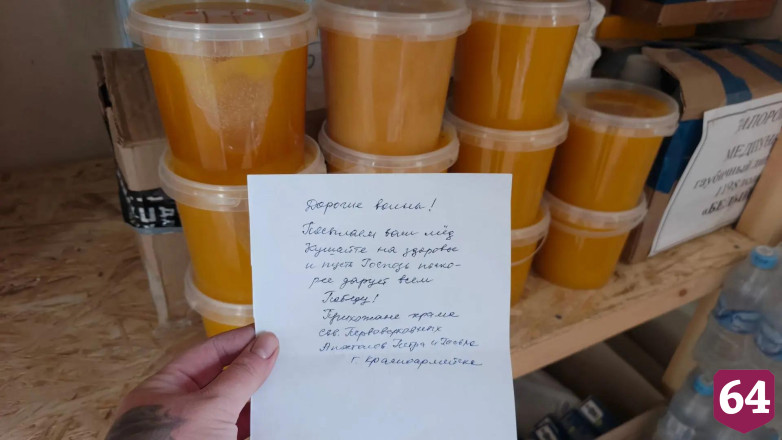 Дорогие воины!
Посылаем вам мёд
Кушайте на здоровье
и пусть Господь поско-
рее дарует всем
Победу!
Прихожане храма
свв. Первоверховных
Апостолов Петра и Павла
г. Красноармейска
МЕДПУН
64